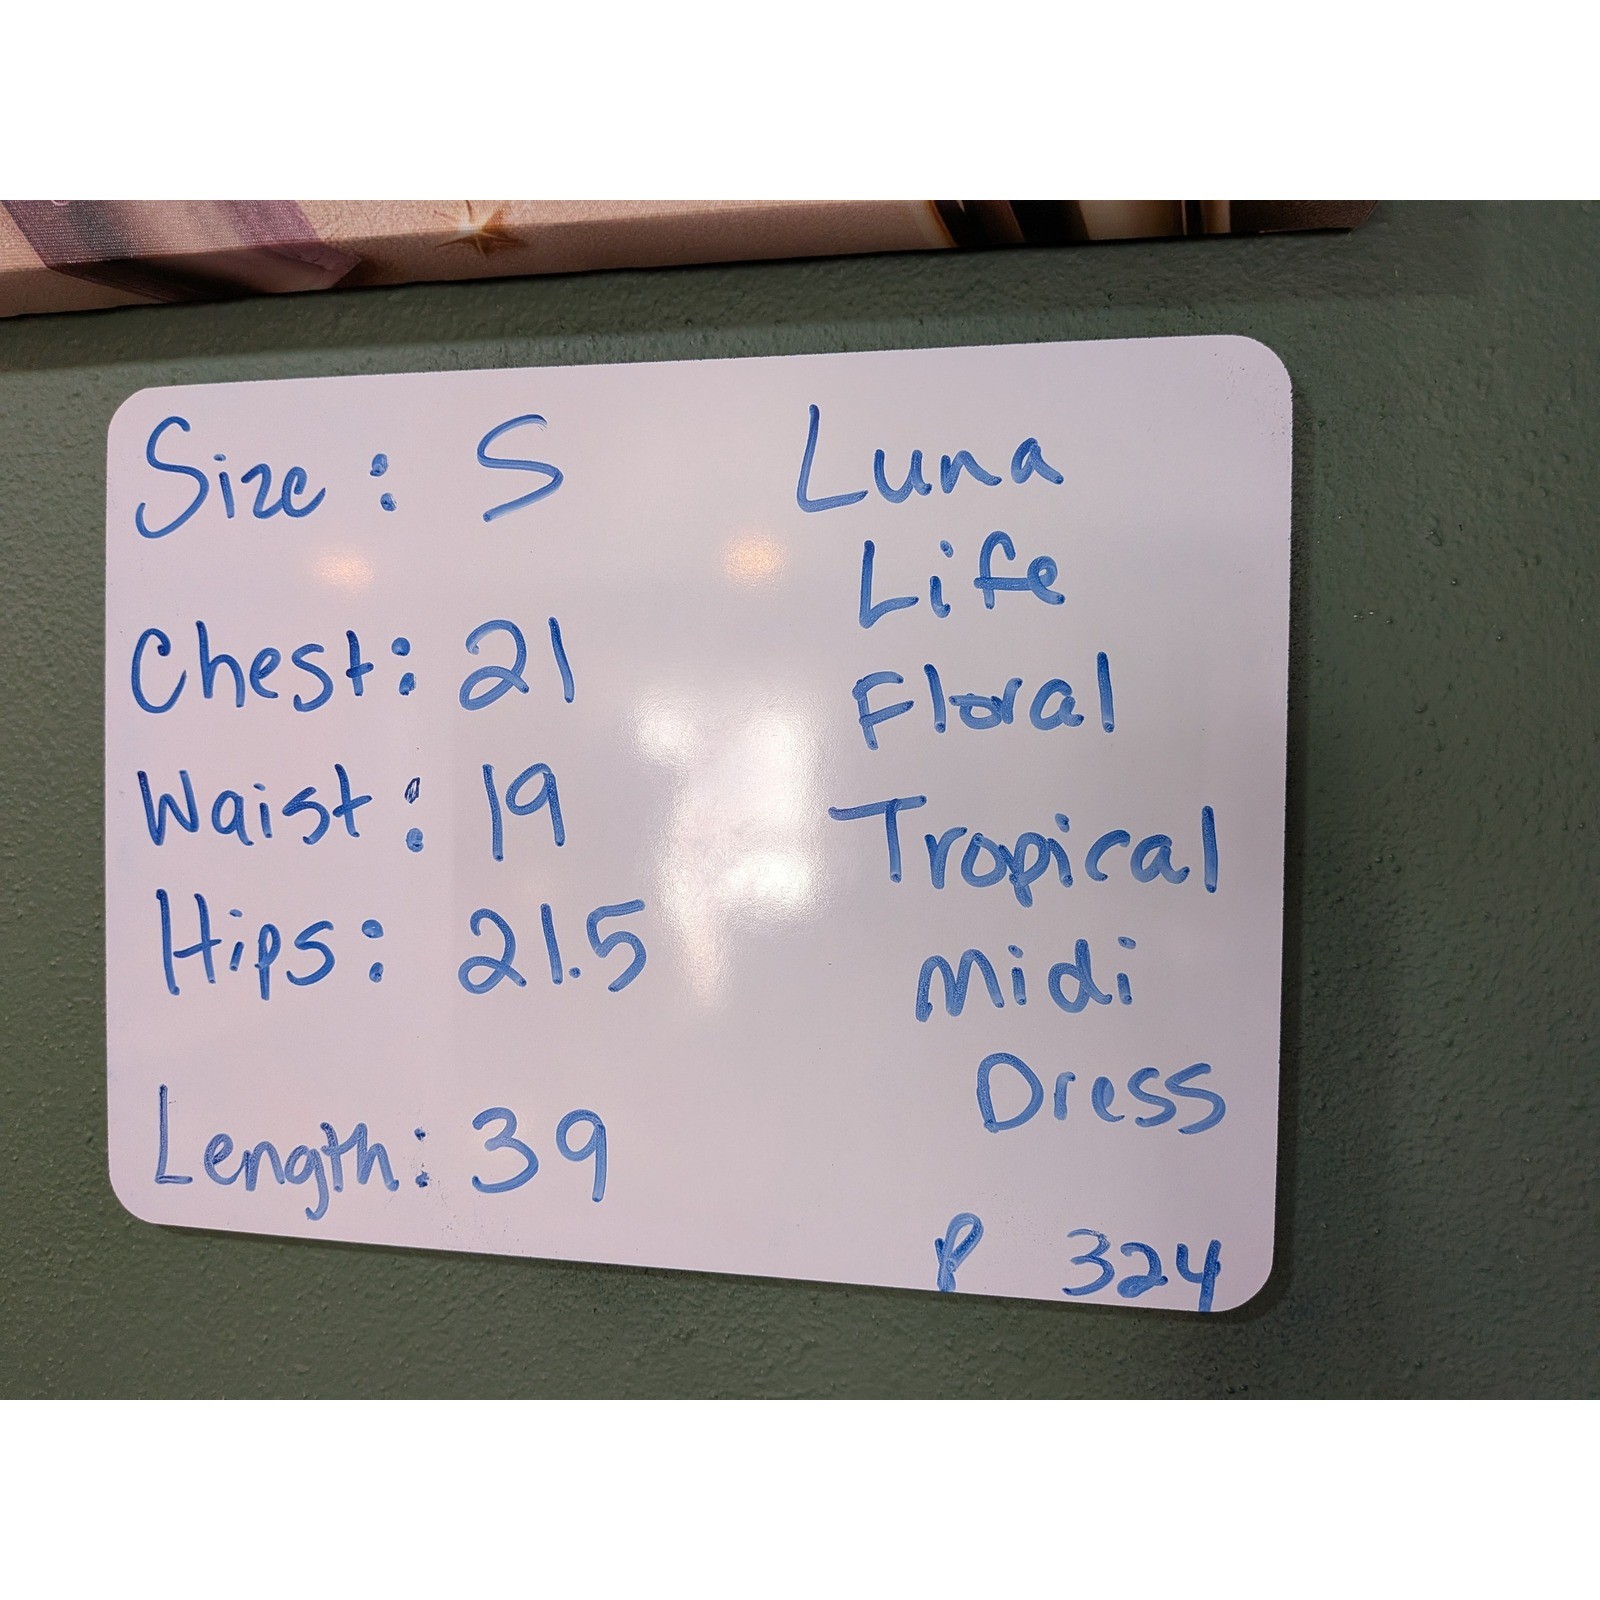 Size: S
Chest: 21
Waist: 19
Hips: 21.5
Length: 39
Luna
Life
Floral
Tropical
Midi
Dress
P 324